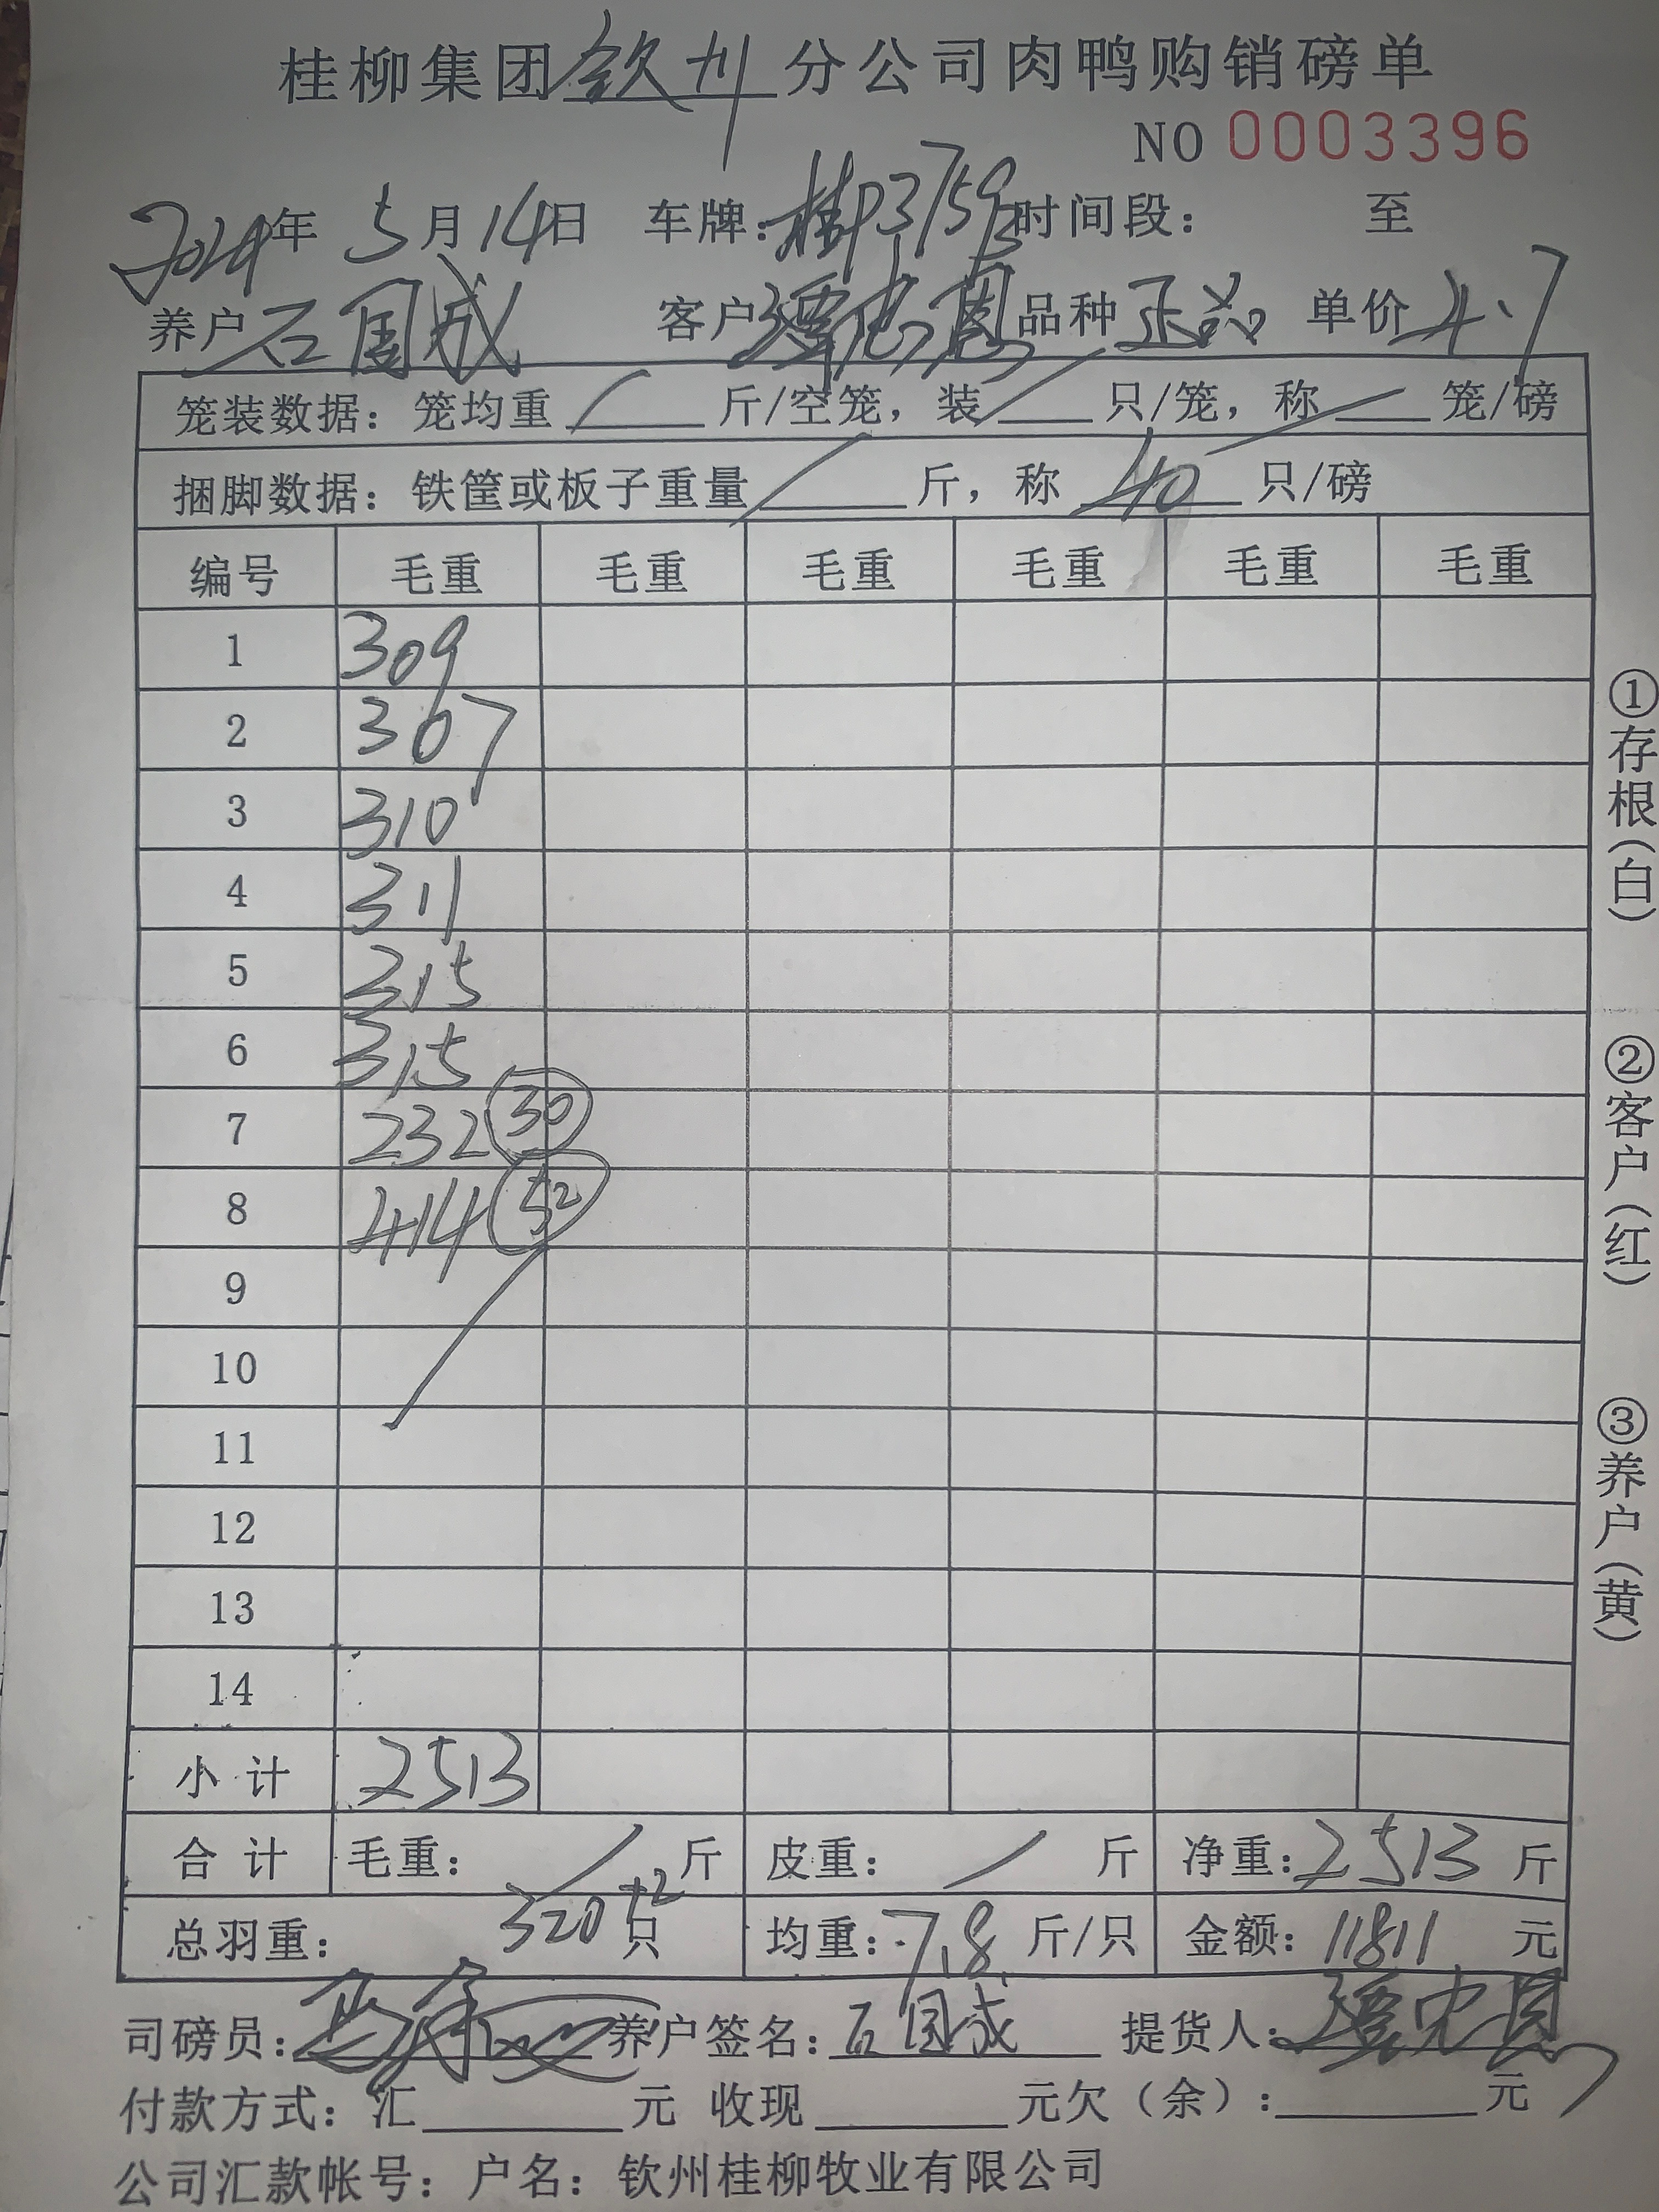 桂柳集团钦州分公司肉鸭购销磅单
NO 0003396
2024年 5月14日 车牌: 时间段: 至
养户 石国成 客户 品种 正品 单价 4.7
笼装数据: 笼均重 / 斤/空笼, 装 / 只/笼, 称 / 笼/磅
捆脚数据: 铁筐或板子重量 / 斤, 称 40 只/磅
编号 毛重 毛重 毛重 毛重 毛重 毛重
1 309
2 307
3 310
4 311
5 315
6 315
7 232 30
8 414 52
9
10
11
12
13
14
小计 2513
合计 毛重: / 斤 皮重: / 斤 净重: 2513 斤
总羽重: 320+2 只 均重: 7.8 斤/只 金额: 11811 元
司磅员: 养户签名: 石国成 提货人:
付款方式: 汇 元 收现 元欠(余): 元
公司汇款帐号: 户名: 钦州桂柳牧业有限公司
①存根(白)
②客户(红)
③养户(黄)